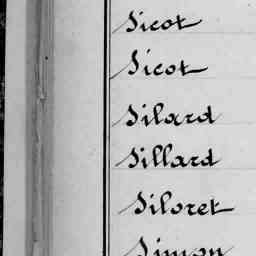 Sicot
Sicot
Silard
Sillard
Siloret
Simon